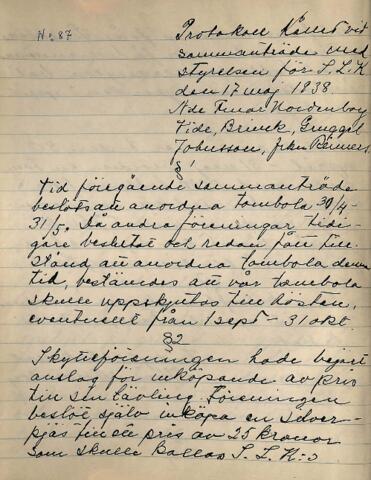 Nr. 87
Protokoll hållet vid
sammanträde med
styrelsen för S. L. K.
den 17 maj 1938
Nde Fenar Nordenborg
Vide, Brinck,
Johnsson, frken
§ 1
Vid föregående sammanträde
beslöts att anordna tombola 30/4-
31/5. Då andra föreningar tidi-
gare beslutat och redan fått till-
stånd att anordna tombola denna
tid, bestämdes att vår tombola
skulle uppskjutas till hösten,
eventuellt från 1 sept - 31 okt.
§ 2
Skytteföreningen hade begärt
anslag för inköpande av pris
till sin tävling. Föreningen
beslöt själv inköpa en silver-
pjäs till ett pris av 25 kronor
som skulle kallas S. L. K:s